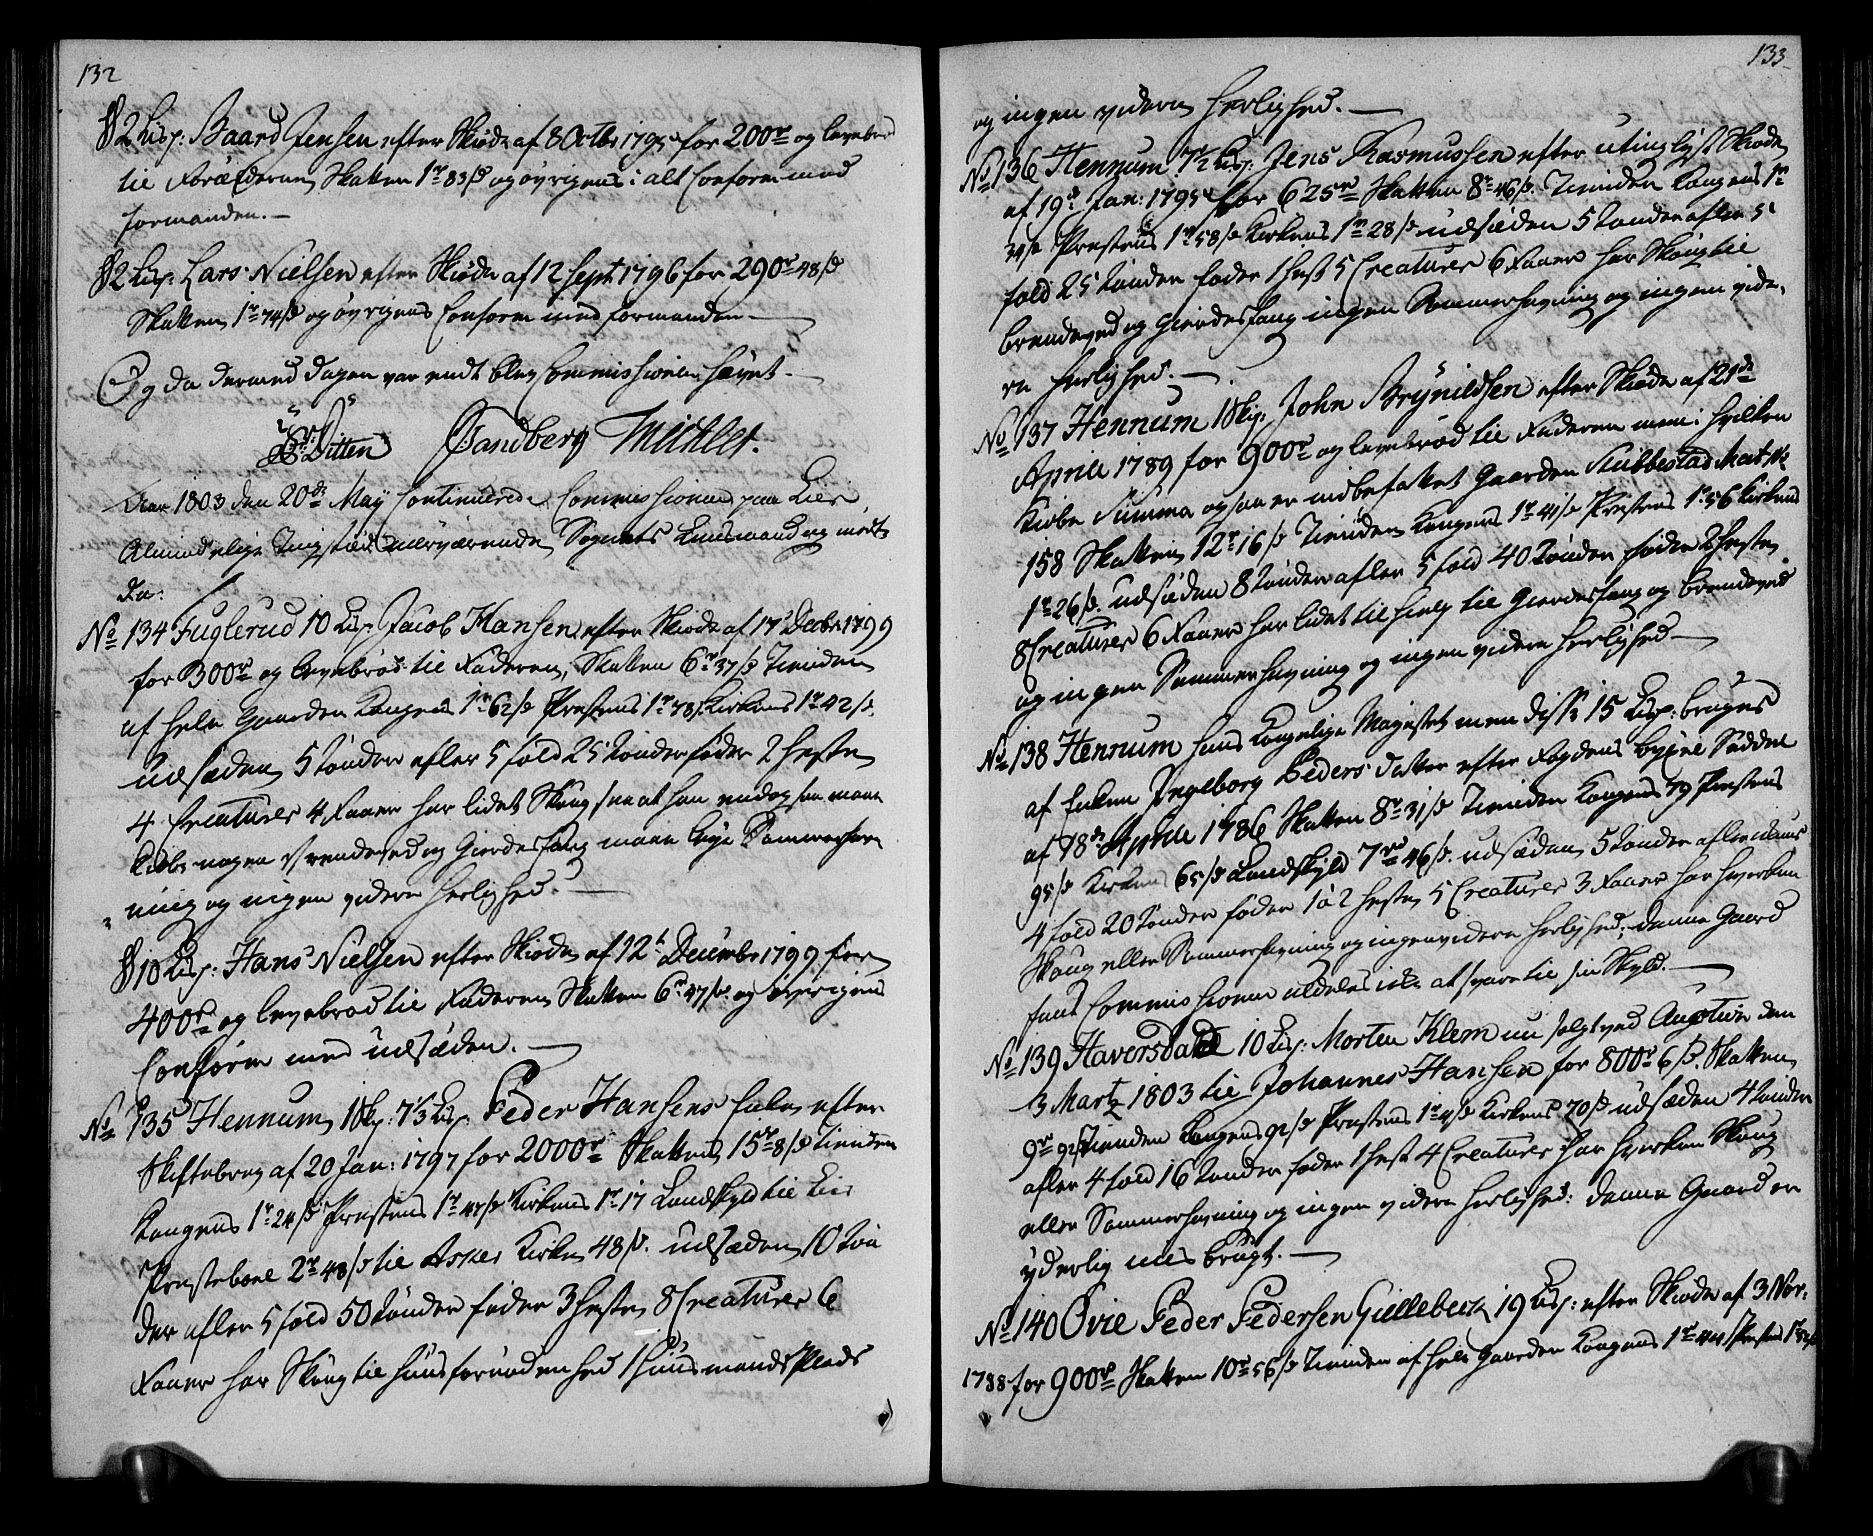 132
§ 2 Lisp: Baard Jensen efter Skiøde af 8 Octbr 1795 for 200 rd og levebrød
til Forældrene, Skatten 1 r 83 s og øvrigens i alt Conform med
formanden. —
§ 2 Lisp: Lars Nielsen efter Skiøde af 12 Sept: 1796 for 290 r 48 s
Skatten 1 r 74 s og øvrigens Conform med formanden —
Og da dermed dagen var endt blev Commissionen hævet. —
Ditten Sandberg Michlet.
Aar 1803 den 20de May Continuerede Commissionen paa Lier
Almindelige Tingsted nærværende Sognets Lensmand og mødte
da:
No 134 Fuglerud 10 Lisp Jacob Hansen efter Skiøde af 17 Decbr 1799
for 300 r og levebrød til Faderen, Skatten 6 r 37 s Tienden
af hele Gaarden Kongens 1 r 62 s Præstens 1 r 78 s Kirkens 1 r 42 s.
Udsæden 5 tønder afler 5 fold 25 tønder føder 2 heste
4 Creaturer 4 Faaer har lidet Skoug saa at han endog maae
kiøbe nogen Brendeved og Gierdesfang maae leye Sommerhav
ning og ingen videre herlighed. —
§ 10 Lisp: Hans Nielsen efter Skiøde af 12te Decembr 1799 for
400 r og levebrød til Faderen Skatten 6 r 37 s og øvrigens
Conform med udsæden. —
No 135 Hennum 1 Skp: 7 1/3 Lisp Peder Hansens Enke efter
Skiftebrev af 20 Jan: 1797 for 2000 r Skatten 15 r 8 s Tienden
Kongens 1 r 24 s Præstens 1 r 47 s Kirkens 1 r 17 Landskyld til Lier
Præsteboel 2 r 48 s til Asker Kirke 48 s. udsæden 10 tøn
der afler 5 fold 50 tønder føder 3 heste 8 Creaturer 6
Faaer har Skoug til huusfornødenhed 1 huusmands Plads
133
og ingen videre herlighed. —
No 136 Hennum 7 1/2 Lisp: Jens Rasmussen efter utinglyst Skiøde
af 19d Jan: 1795 for 625 r Skatten 8 r 46 s. Tienden Kongens 1 r
34 s Præstens 1 r 58 s Kirkens 1 r 28 s udsæden 5 tønder afler 5
fold 25 tønder føder 1 hest 5 Creaturer 6 Faaer har Skoug til
brendeved og Gierdesfang ingen Sommerhavning og ingen vide-
re herlighed. —
No 137 Hennum 1 Skp: John Brynildsen efter Skiøde af 21de
Aprill 1789 for 900 r og levebrød til Faderen men i hvilken
Kiøbe Summa ogsaa er indbefattet Gaarden Stubbestad Mat No
158 Skatten 12 r 16 s Tienden Kongens 1 r 41 s Præstens 1 r 56 Kirkens
1 r 26 s. udsæden 8 tønder afler 5 fold 40 tønder føder 2 heste
8 Creaturer 6 Faaer har lidet til hielp til Gierdesfang og brendeved
og ingen Sommerhavning og ingen videre herlighed —
No 138 Hennum hans Kongelige Mayestet men disse 15 Lisp: bruges
af Enken Ingeborg Peders datter efter Fogdens Bygsel Seddel
af 18de Aprill 1786 Skatten 8 r 31 s Tienden Kongens 79 Præstens
95 s Kirken 65 s Landskyld 7 r 46 s. udsæden 5 tønder afler
4 fold 20 tønder føder 1 à 2 heste 5 Creaturer 3 Faaer har hverken
Skoug eller Sommerhavning og ingen videre herlighed; denne Gaard
fant Commissionen aldeles icke at svare til sin Skyld. —
No 139 Haversdahl 10 Lisp: Morten Klem nu solgt ved Auction den
3 Martz 1803 til Johannes Hansen for 800 r 6 s. Skatten
9 r 92 s Tienden Kongens 92 s Præstens 1 r 4 s Kirkens 70 s udsæden 4 tønder
afler 4 fold 16 tønder føder 1 hest 4 Creaturer har hverken Skoug
eller Sommerhavning og ingen videre herlighed: denne Gaard er
yderlig brugt. —
No 140 Øvre Peder Pedersen Gullebeck 19 Lisp: efter Skiøde af 3 Nov:
1788 for 900 r Skatten 10 r 56 s Tienden af hele Gaarden Kongens 1 r 44 Præstens